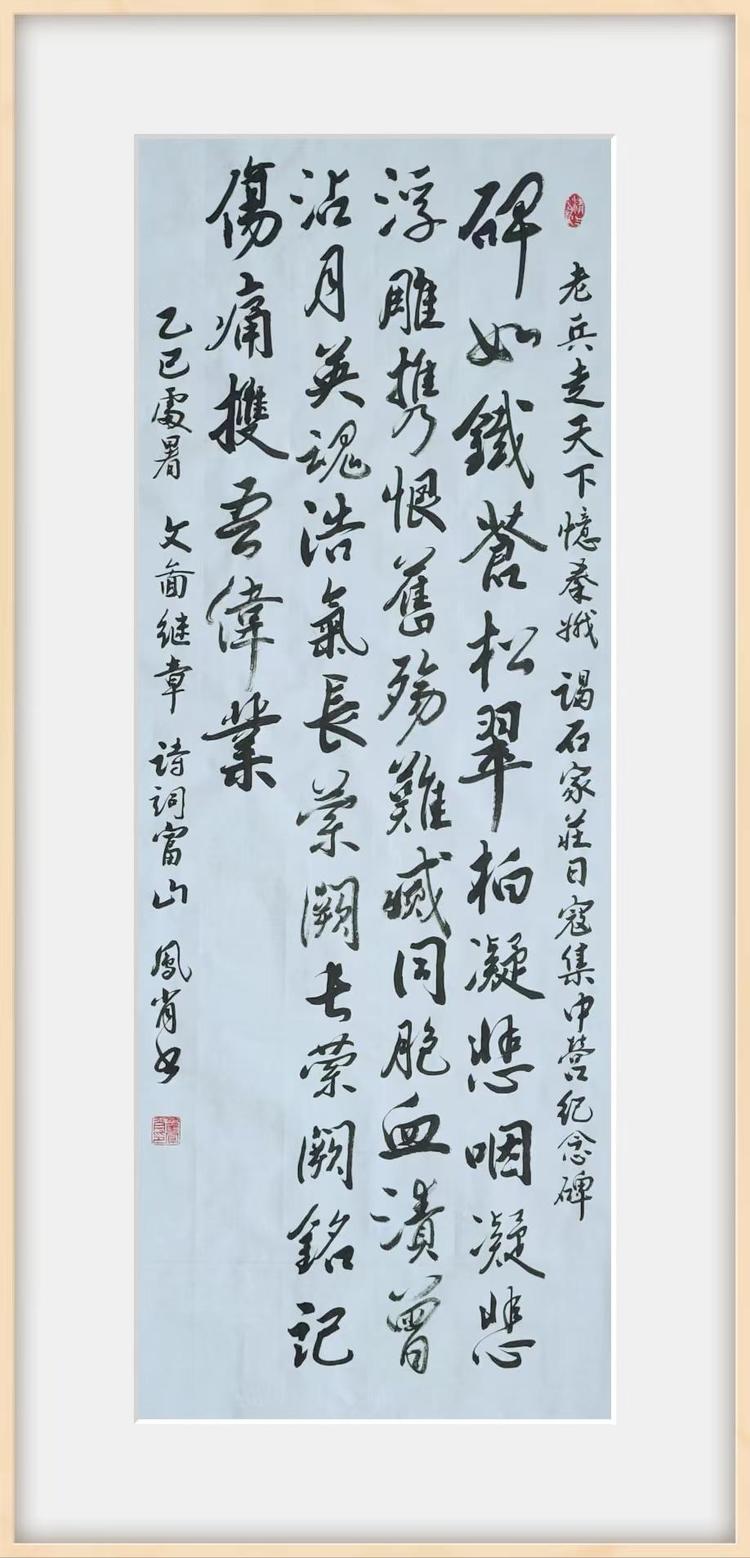 老兵走天下憶秦娥 謁石家莊日寇集中營纪念碑
碑如鐵蒼松翠柏凝悲咽凝悲
浮雕携恨舊殤難同胞血漬曾
沾月英魂浩氣長萦闕长萦闕銘記
傷痛吾偉業
乙巳處暑 文面继章 詩詞富山 鳳肖书